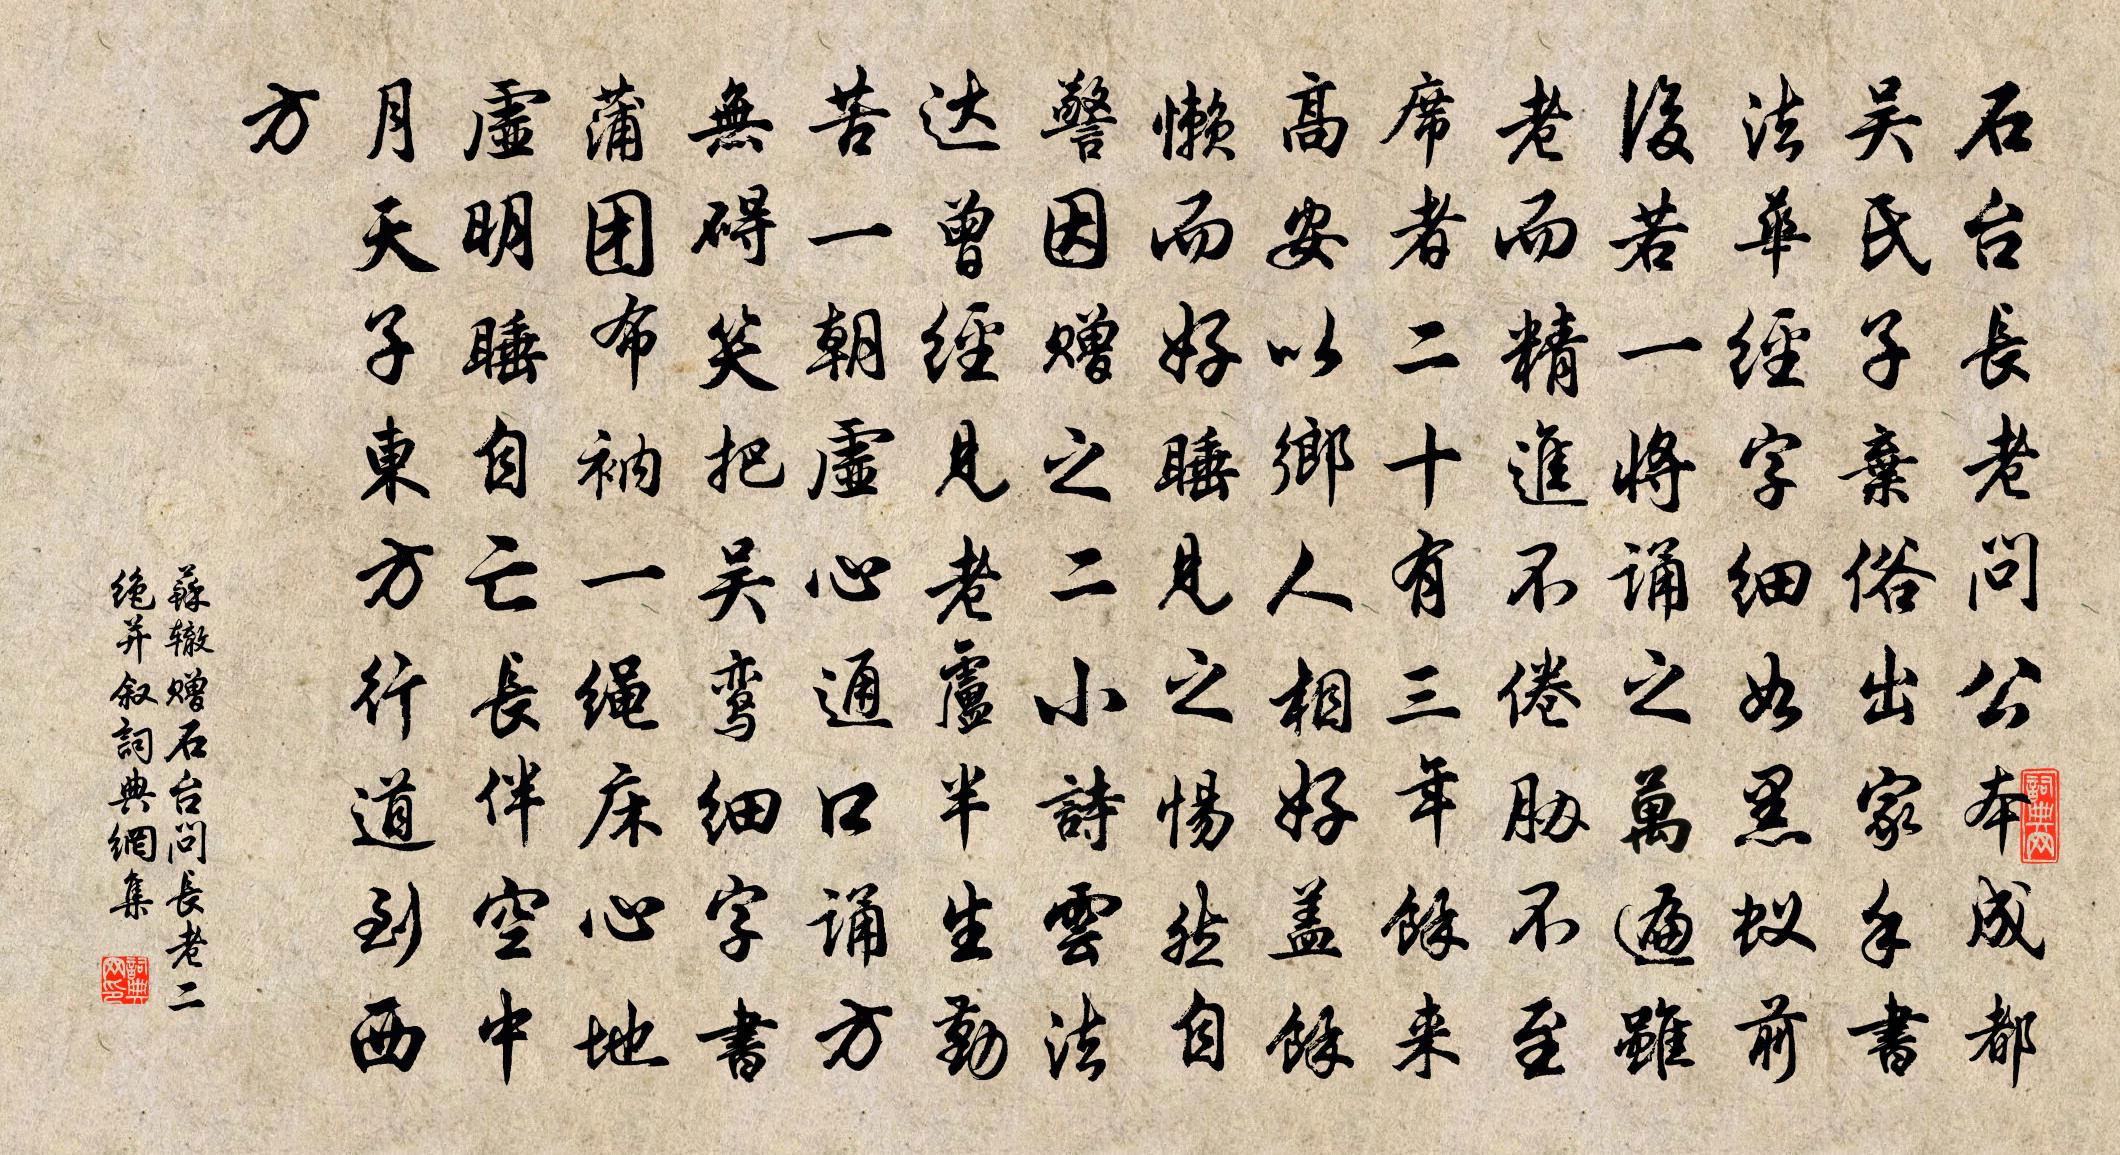 石台長老問公本成都
吴氏子棄俗出家手書
法華經字細如黑蚁前
後若一将诵之萬遍雖
老而精進不倦胁不至
席者二十有三年餘来
高安以鄉人相好盖餘
懒而好睡見之惕然自
警因赠之二小詩雲法
达曾經見老盧半生勤
苦一朝虛心通口诵方
無碍笑把吴鸾細字書
蒲团布衲一绳床心地
虛明睡自亡長伴空中
月天子東方行道到西
方
蘇辙赠石台問長老二
绝并叙詞典網集
詞典网
詞典网印